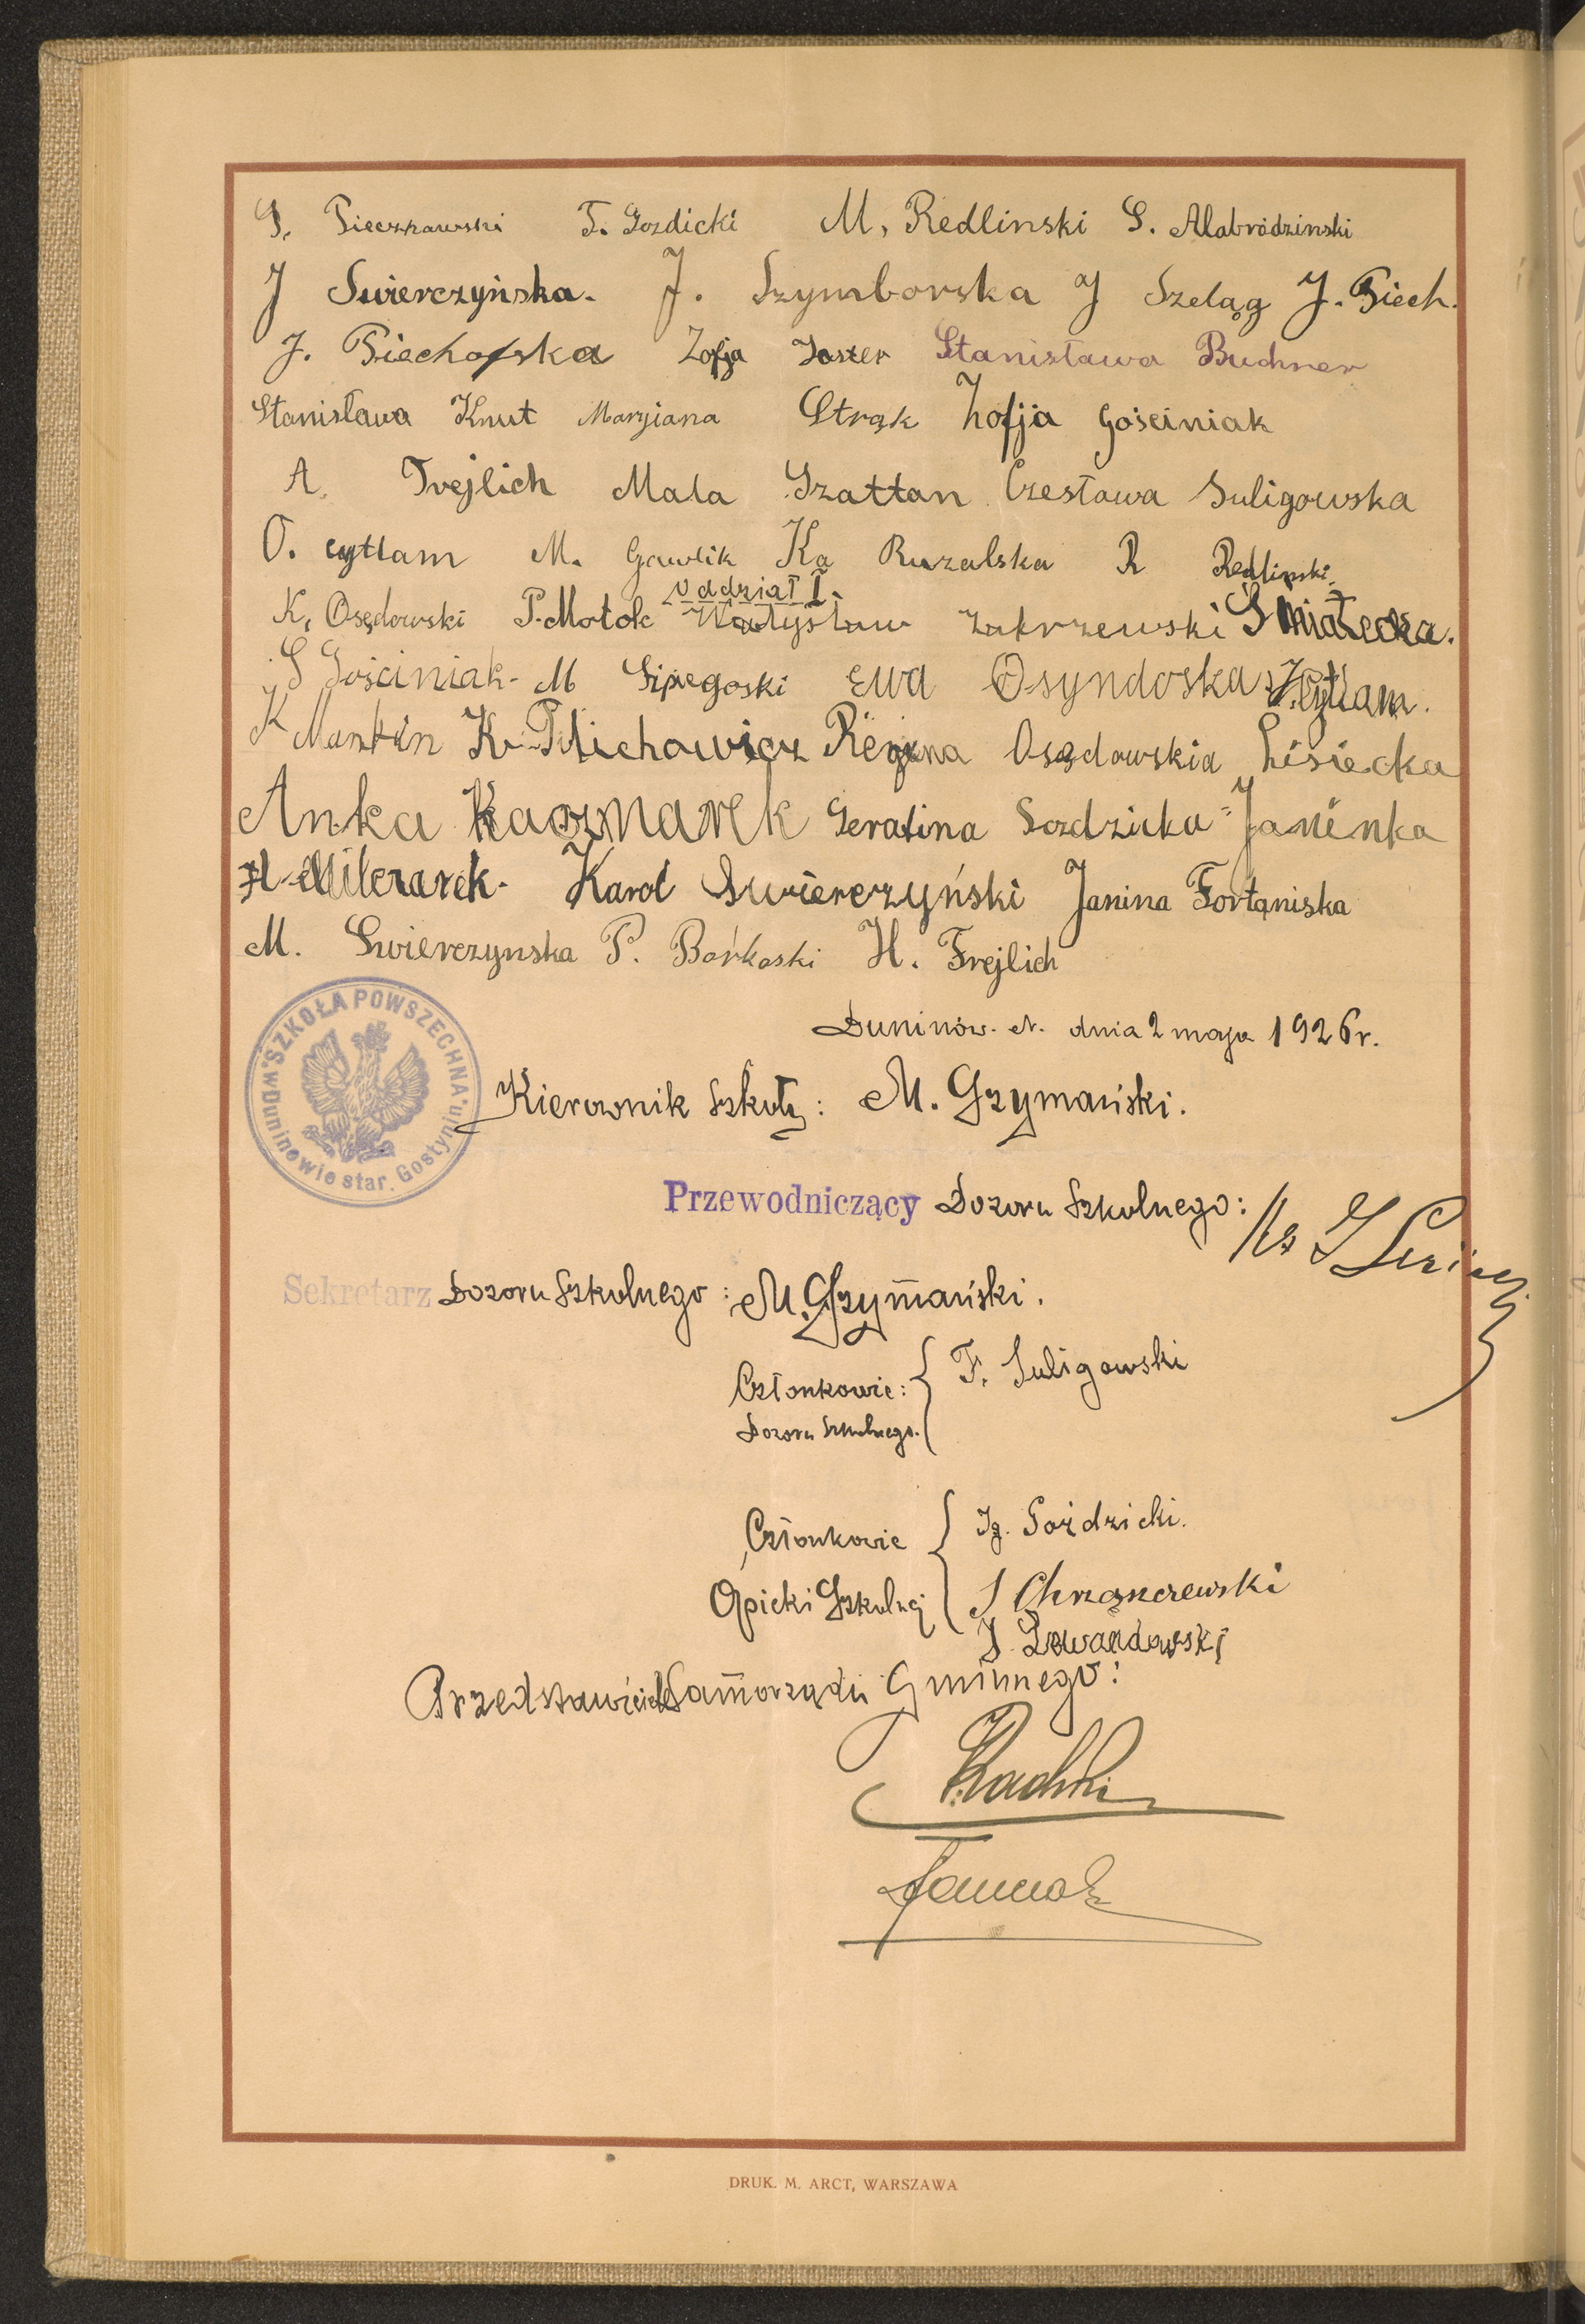 S. Pieczkawski F. Gozdicki M, Redlinski S. Nabrodzinski
J Swierczyńska. J. Szymborska J Szeląg J. Piech.
J. Piechofska Zofja Joszer Stanisława Buchner
Stanisława Knut Maryjana Strąk Zofja Gościniak
A. Frejlich Mala Szattan Czesława Suligowska
O. cytlam M. Gawlik Ka Ruzalska R Redlinski
Oddział I.
K, Osędowski P. Motok Władysław Zakrzewski S Miałecka.
S Gościniak - M Sipiegoski Ewa Osyndoska Cytlam.
K Mantin K. Michowicz Regina Osądowskia Lisiecka
Anka Kaczmarek Geratina Gozdzicka Janinka
H. Milczarek. Karol Swierczyński Janina Fortaniska
M. Swierczynska P. Borkoski H. Frejlich
Duninów. N. dnia 2 maja 1926 r.
SZKOŁA POWSZECHNA w Duninowie star. Gostynin
Kierownik Szkoły: M. Szymański.
Przewodniczący Dozoru Szkolnego: Ks
Sekretarz Dozoru Szkolnego: M. Szymański.
Członkowie: F. Suligowski
Dozoru Szkolnego.
Członkowie Ig. Goździcki.
Opieki Szkolnej S Chrąnczewski
J. Lewandowski
Przedstawiciele Samorządu Gminnego:
DRUK. M. ARCT, WARSZAWA